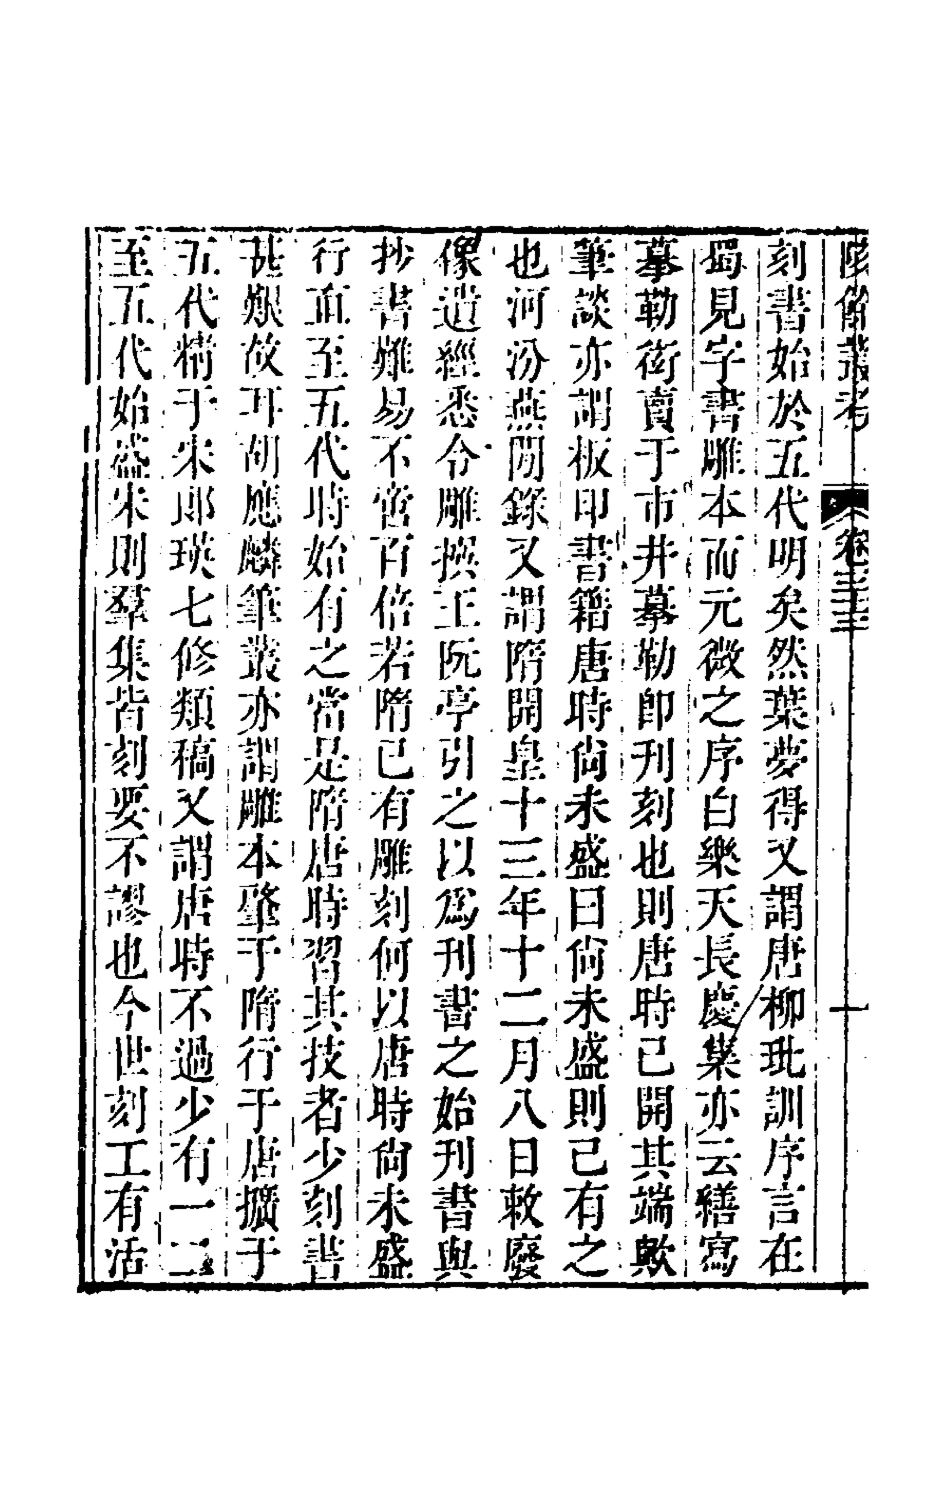 陔餘叢考 卷三十三
刻書始於五代明矣然葉夢得又謂唐柳玭訓序言在
蜀見字書雕本而元微之序白樂天長慶集亦云繕寫
摹勒衒賣于市井摹勒卽刊刻也則唐時已開其端歟
筆談亦謂板印書籍唐時尙未盛曰尙未盛則已有之
也河汾燕閒錄又謂隋開皇十三年十二月八日敕廢
像遺經悉令雕撰王阮亭引之以爲刊書之始刊書與
抄書難易不啻百倍若隋已有雕刻何以唐時尙未盛
行直至五代時始有之當是隋唐時習其技者少刻書
甚艱故耳胡應麟筆叢亦謂雕本肇于隋行于唐擴于
五代精于宋郎瑛七修類稿又謂唐時不過少有一二
至五代始盛宋則羣集皆刻要不謬也今世刻工有活